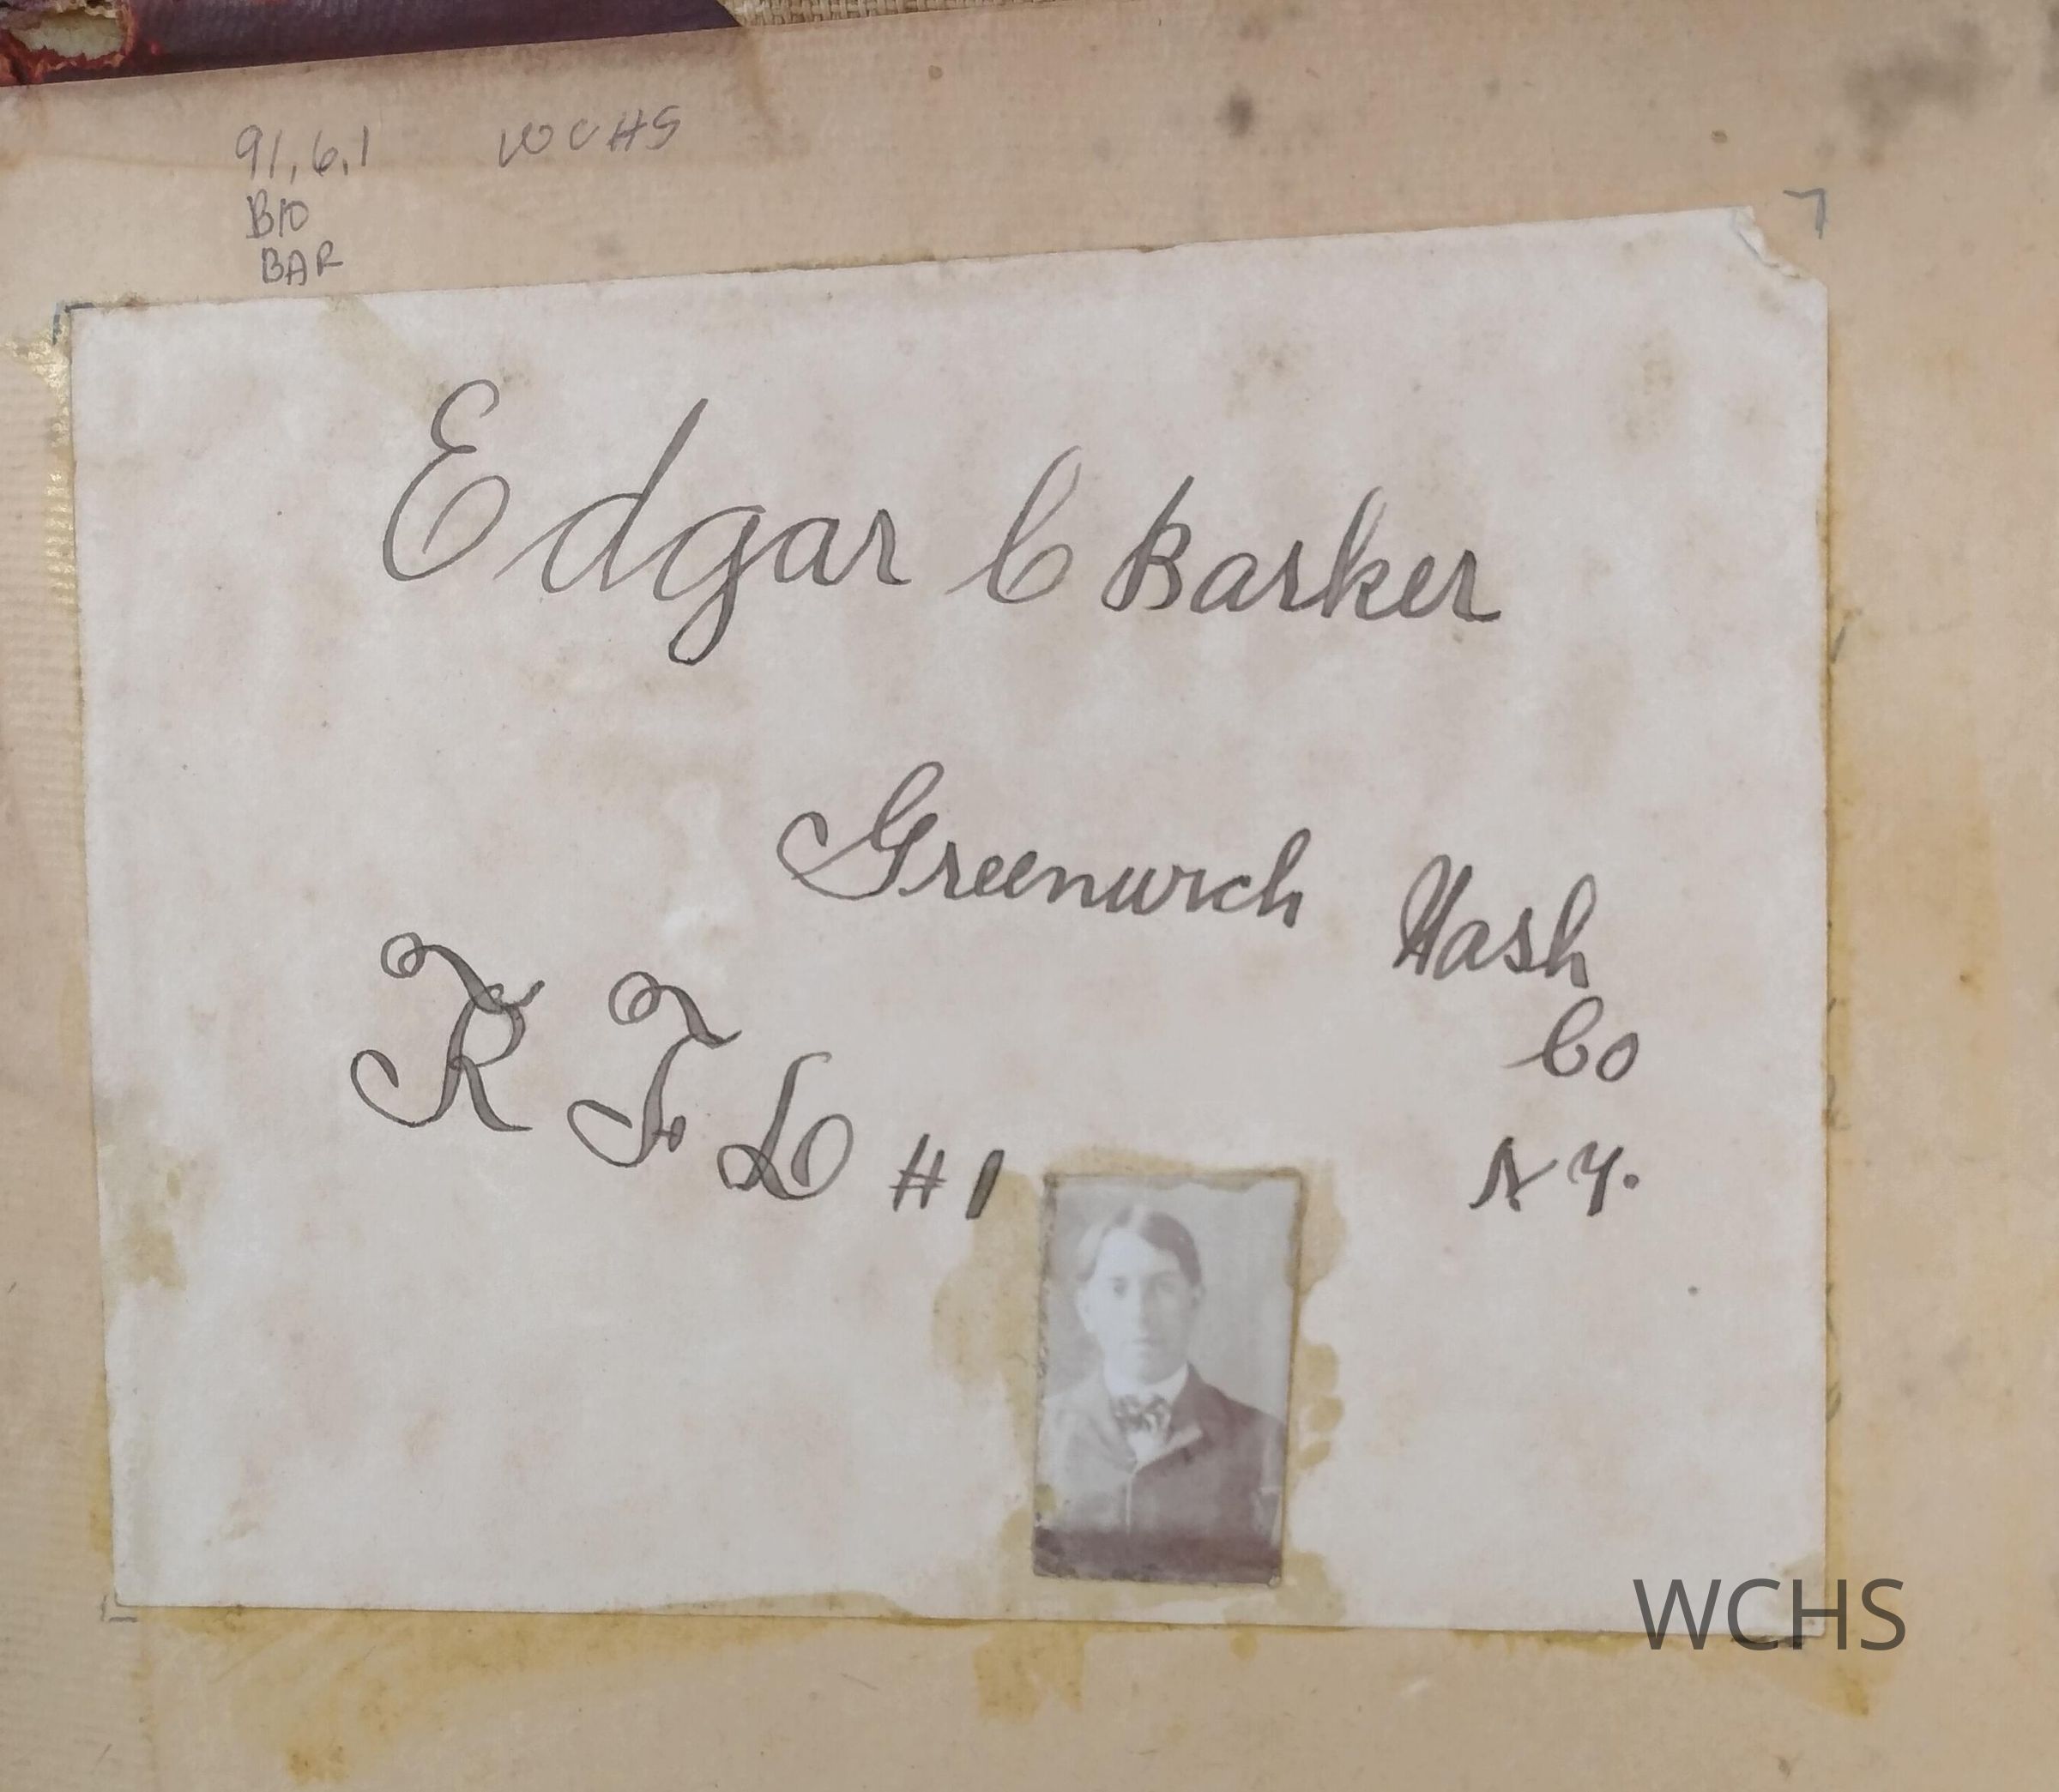 91.6.1 WCHS
BIO
BAR
Edgar C Barker
Greenwich Wash
Co
N Y.
R F D #1
WCHS